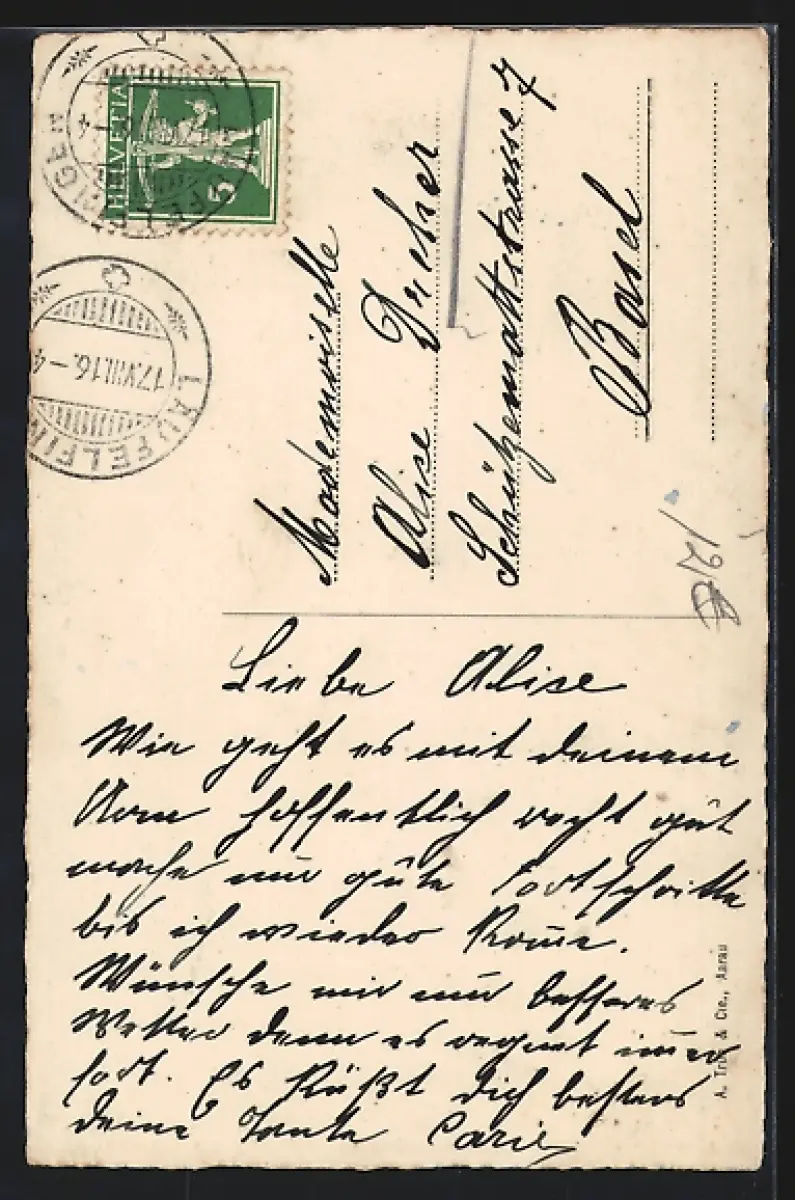 HELVETIA
5
LÄUFELFIN
17.VIII.16.-4
Mademoiselle
Alise Dreher
Schützenmattstrasse 7
Basel
Liebe Alise
Wie geht es mit deinem
Arm hoffentlich recht gut
mache nur gute Fortschritte
bis ich wieder kome.
Wünsche mir nur besseres
Wetter denn es regnet imer
fort. Es küßt dich bestens
deine Tante
A. Trüb & Cie., Aarau